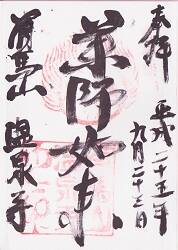 奉拝
平成二十五年
九月二十三日
薬師如来
温泉寺